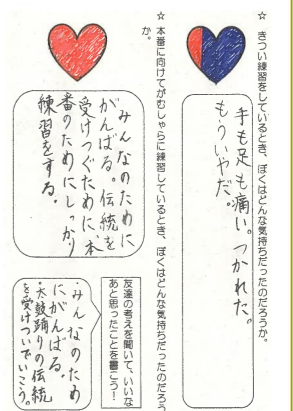 ☆ きつい練習をしているとき、ぼくはどんな気持ちだったのだろうか。
手も足も痛い。つかれた。
もういやだ。
☆ 本番に向けてがむしゃらに練習しているとき、ぼくはどんな気持ちだったのだろう
か。
みんなのために
がんばる。伝統を
受けつぐために、本
番のためにしっかり
練習をする。
友達の考えを聞いて、いいな
あと思ったことを書こう！
・みんなのため
にがんばる。
・太鼓踊りの伝統
を受けついでいこう。